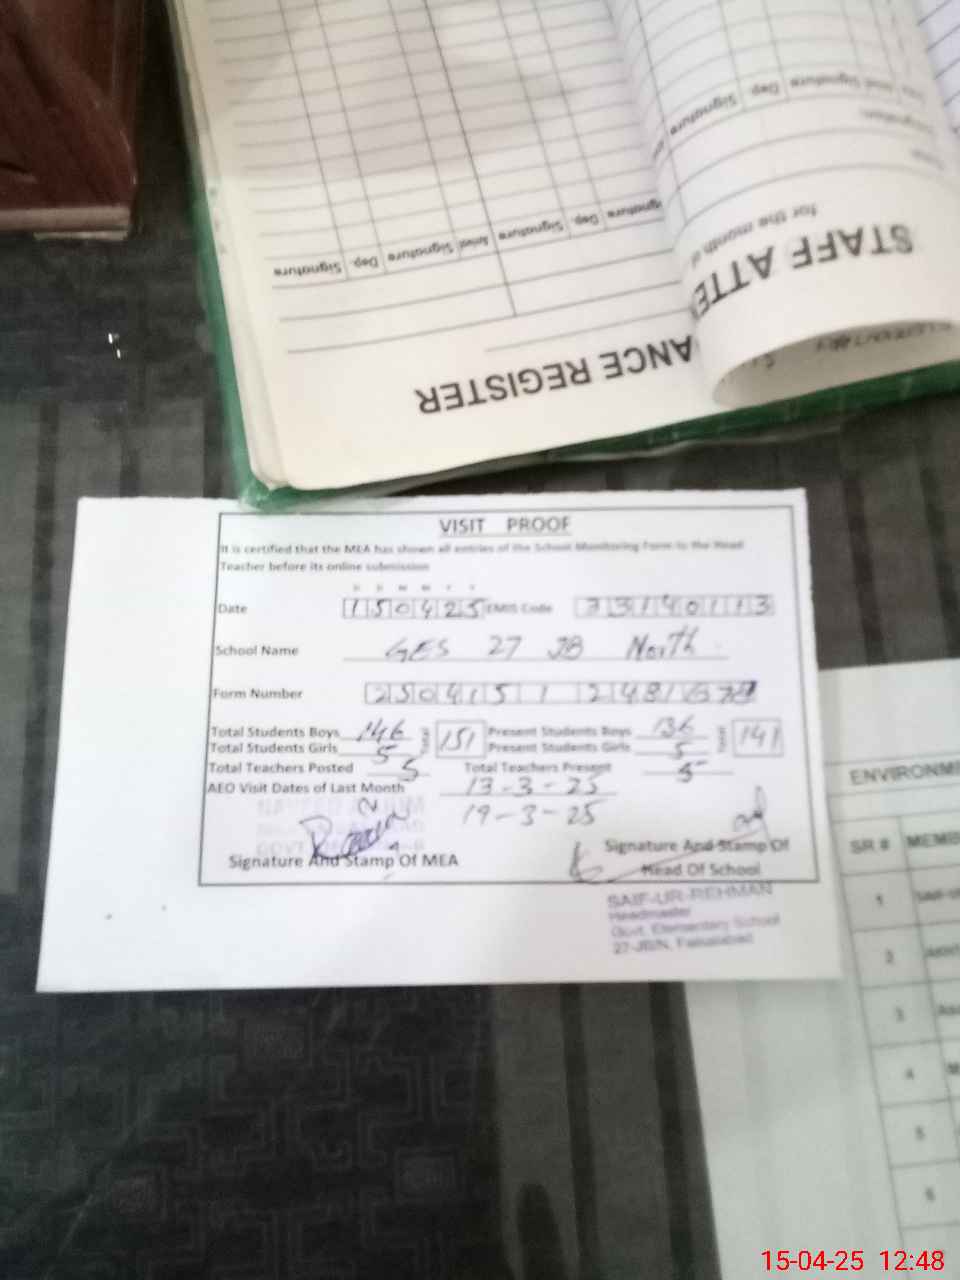 Signature Dep. Signature Arrival Signature Dep. Signature
Signature Dep. Signature
for the month of
STAFF ATTE
ANCE REGISTER
VISIT PROOF
It is certified that the MEA has shown all entries of the School Monitoring Form to the Head
Teacher before its online submission
D D M M Y Y
Date 150425 EMIS Code 33140113
School Name GES 27 JB North
Form Number
Total Students Boys 146 Total 151 Present Students Boys 136 Total 141
Total Students Girls 5 Present Students Girls 5
Total Teachers Posted 5 Total Teachers Present 5
AEO Visit Dates of Last Month 13-3-25
19-3-25
Signature And Stamp Of MEA
Signature And Stamp Of
Head Of School
SAIF-UR-REHMAN
Headmaster
Govt. Elementary School
27-JB/N, Faisalabad
ENVIRONM
SR # MEMB
1
2
3
4
5
6
15-04-25 12:48